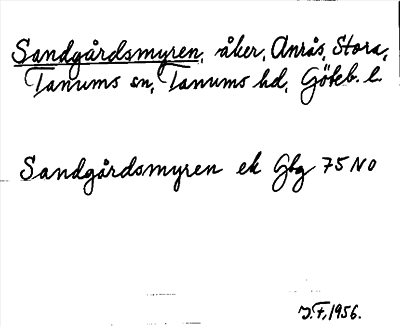 Sandgårdsmyren, åker, Anrås, Stora,
Tanums sn, Tanums hd, Göteb. l.
Sandgårdsmyren ek Gbg 75 NO
J.F, 1956.